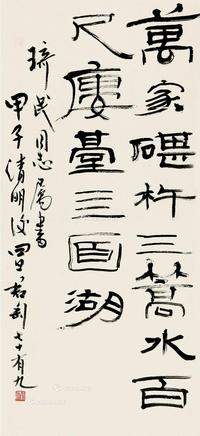 萬家碪杵三篙水百
尺廔臺三面湖
琦民同志屬書
甲子清明後 七十有九